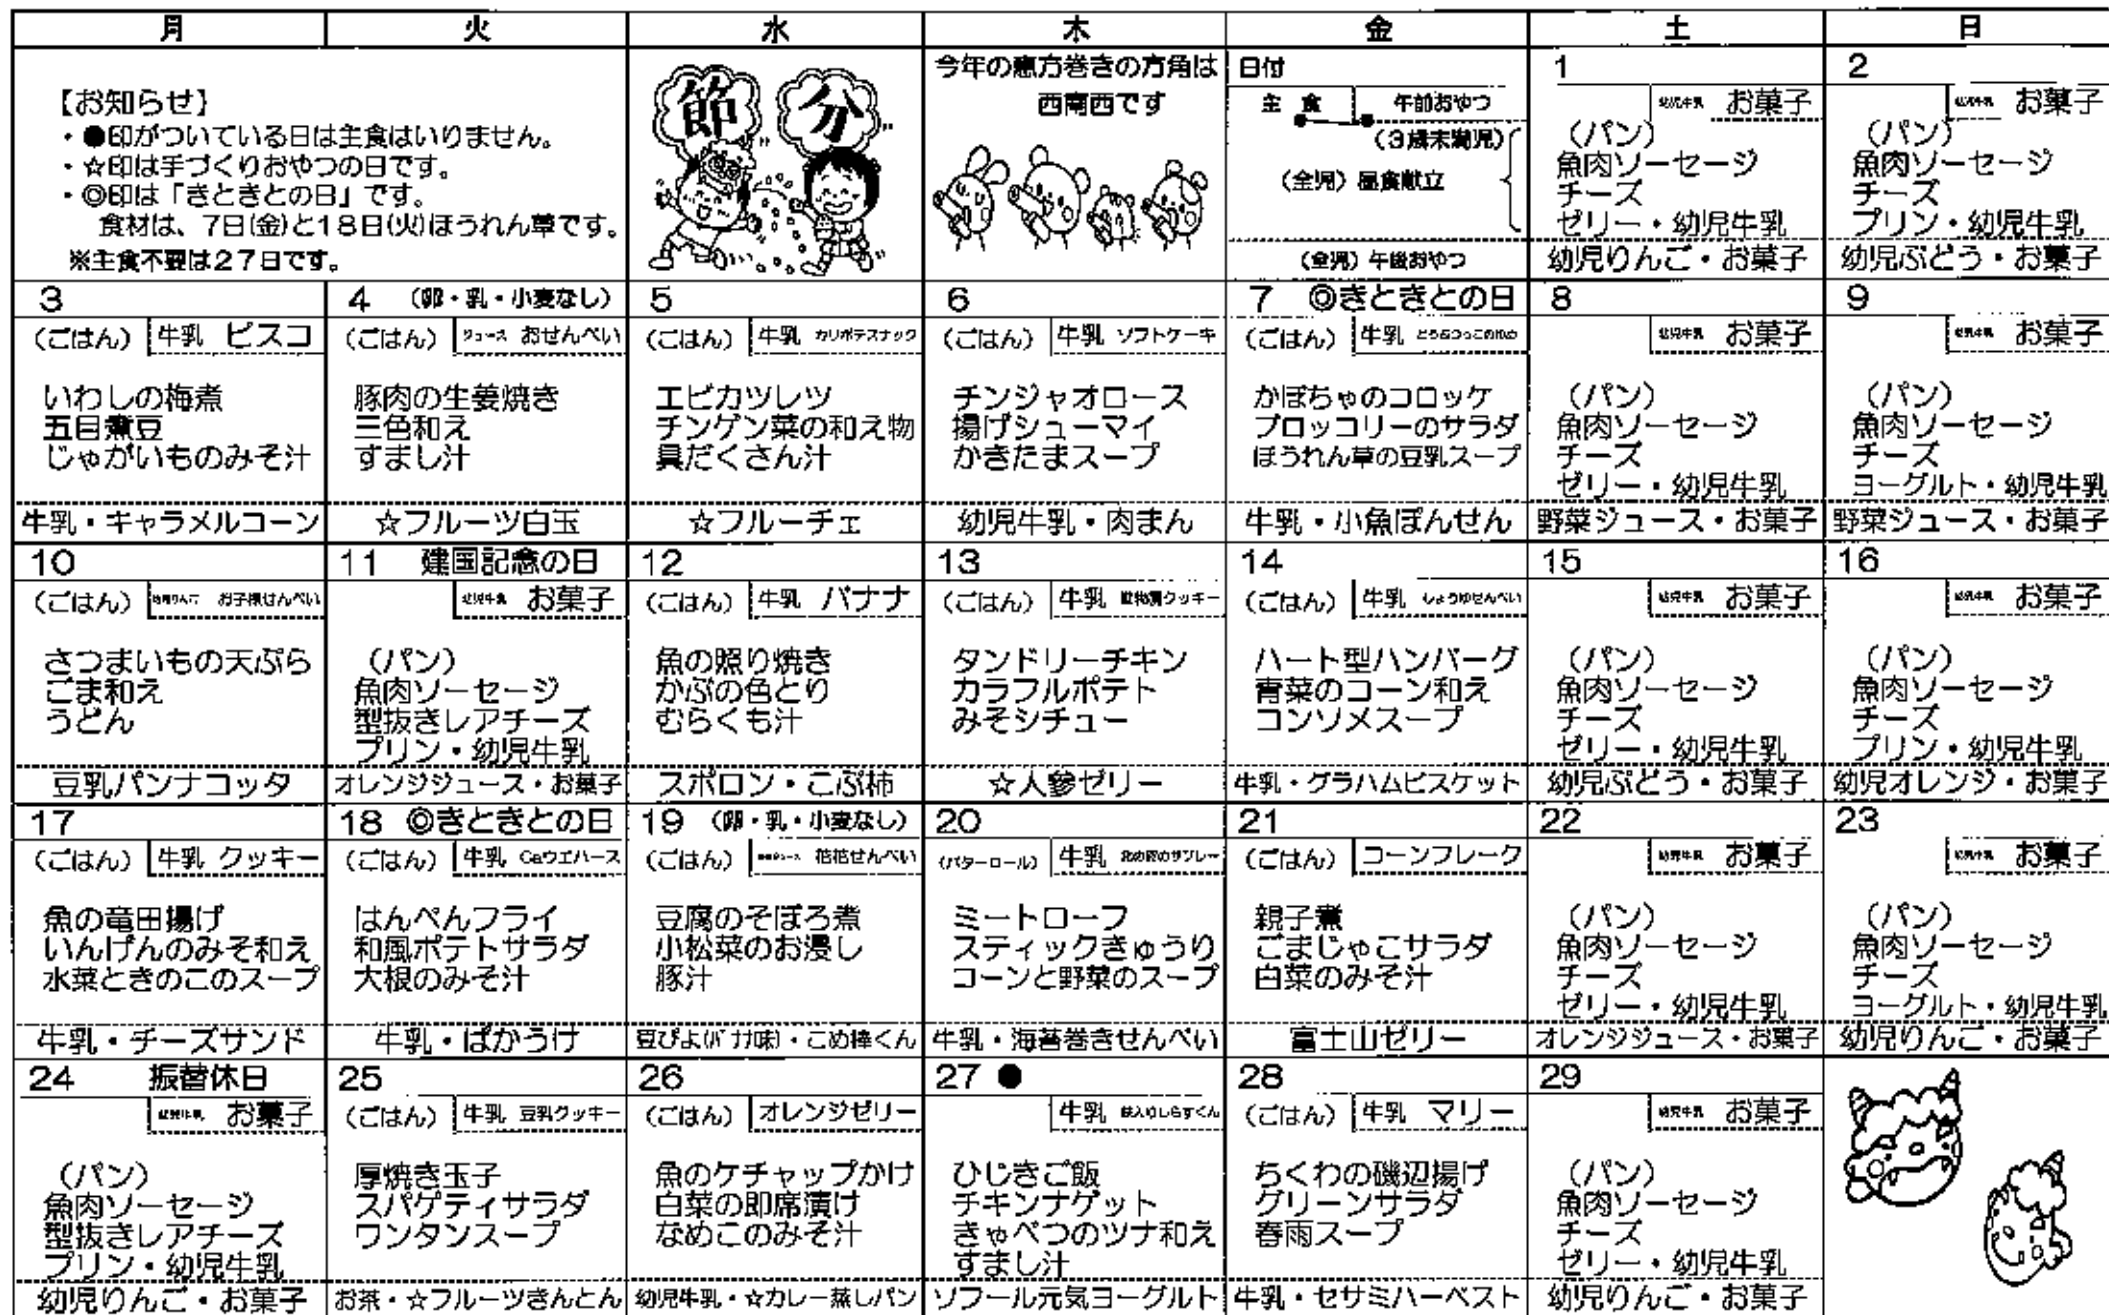 月 火 水 木 金 土 日
【お知らせ】
・●印がついている日は主食はいりません。
・☆印は手づくりおやつの日です。
・◎印は「きときとの日」です。
食材は、7日(金)と18日(火)ほうれん草です。
※主食不要は27日です。
節分
今年の恵方巻きの方角は
西南西です
日付
主食 午前おやつ
(3歳未満児)
(全児)昼食献立
(全児)午後おやつ
1
幼児牛乳 お菓子
(パン)
魚肉ソーセージ
チーズ
ゼリー・幼児牛乳
幼児りんご・お菓子
2
幼児牛乳 お菓子
(パン)
魚肉ソーセージ
チーズ
プリン・幼児牛乳
幼児ぶどう・お菓子
3
(ごはん) 牛乳 ビスコ
いわしの梅煮
五目煮豆
じゃがいものみそ汁
牛乳・キャラメルコーン
4 (卵・乳・小麦なし)
(ごはん) ジュース おせんべい
豚肉の生姜焼き
三色和え
すまし汁
☆フルーツ白玉
5
(ごはん) 牛乳 カリポテスナック
エビカツレツ
チンゲン菜の和え物
具だくさん汁
☆フルーチェ
6
(ごはん) 牛乳 ソフトケーキ
チンジャオロース
揚げシューマイ
かきたまスープ
幼児牛乳・肉まん
7 ◎きときとの日
(ごはん) 牛乳
かぼちゃのコロッケ
ブロッコリーのサラダ
ほうれん草の豆乳スープ
牛乳・小魚ぽんせん
8
幼児牛乳 お菓子
(パン)
魚肉ソーセージ
チーズ
ゼリー・幼児牛乳
野菜ジュース・お菓子
9
幼児牛乳 お菓子
(パン)
魚肉ソーセージ
チーズ
ヨーグルト・幼児牛乳
野菜ジュース・お菓子
10
(ごはん) 幼児りんご お子様せんべい
さつまいもの天ぷら
ごま和え
うどん
豆乳パンナコッタ
11 建国記念の日
幼児牛乳 お菓子
(パン)
魚肉ソーセージ
型抜きレアチーズ
プリン・幼児牛乳
オレンジジュース・お菓子
12
(ごはん) 牛乳 バナナ
魚の照り焼き
かぶの色とり
むらくも汁
スポロン・こぶ柿
13
(ごはん) 牛乳 動物園クッキー
タンドリーチキン
カラフルポテト
みそシチュー
☆人参ゼリー
14
(ごはん) 牛乳 しょうゆせんべい
ハート型ハンバーグ
青菜のコーン和え
コンソメスープ
牛乳・グラハムビスケット
15
幼児牛乳 お菓子
(パン)
魚肉ソーセージ
チーズ
ゼリー・幼児牛乳
幼児ぶどう・お菓子
16
幼児牛乳 お菓子
(パン)
魚肉ソーセージ
チーズ
プリン・幼児牛乳
幼児オレンジ・お菓子
17
(ごはん) 牛乳 クッキー
魚の竜田揚げ
いんげんのみそ和え
水菜ときのこのスープ
牛乳・チーズサンド
18 ◎きときとの日
(ごはん) 牛乳 Caウエハース
はんぺんフライ
和風ポテトサラダ
大根のみそ汁
牛乳・ばかうけ
19 (卵・乳・小麦なし)
(ごはん) 花花せんべい
豆腐のそぼろ煮
小松菜のお浸し
豚汁
豆ぴよ(バナナ味)・こめ棒くん
20
(バターロール) 牛乳
ミートローフ
スティックきゅうり
コーンと野菜のスープ
牛乳・海苔巻きせんべい
21
(ごはん) コーンフレーク
親子煮
ごまじゃこサラダ
白菜のみそ汁
富士山ゼリー
22
幼児牛乳 お菓子
(パン)
魚肉ソーセージ
チーズ
ゼリー・幼児牛乳
オレンジジュース・お菓子
23
幼児牛乳 お菓子
(パン)
魚肉ソーセージ
チーズ
ヨーグルト・幼児牛乳
幼児りんご・お菓子
24 振替休日
幼児牛乳 お菓子
(パン)
魚肉ソーセージ
型抜きレアチーズ
プリン・幼児牛乳
幼児りんご・お菓子
25
(ごはん) 牛乳 豆乳クッキー
厚焼き玉子
スパゲティサラダ
ワンタンスープ
お茶・☆フルーツきんとん
26
(ごはん) オレンジゼリー
魚のケチャップかけ
白菜の即席漬け
なめこのみそ汁
幼児牛乳・☆カレー蒸しパン
27 ●
牛乳
ひじきご飯
チキンナゲット
きゃべつのツナ和え
すまし汁
ソフール元気ヨーグルト
28
(ごはん) 牛乳 マリー
ちくわの磯辺揚げ
グリーンサラダ
春雨スープ
牛乳・セサミハーベスト
29
幼児牛乳 お菓子
(パン)
魚肉ソーセージ
チーズ
ゼリー・幼児牛乳
幼児りんご・お菓子